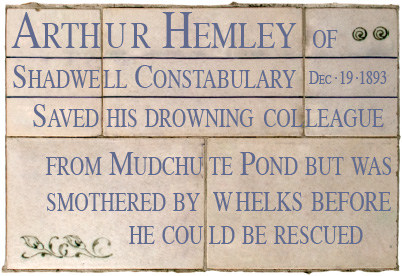 Arthur Hemley of
Shadwell Constabulary Dec · 19 · 1893
Saved his drowning colleague
from Mudchute Pond but was
smothered by whelks before
he could be rescued